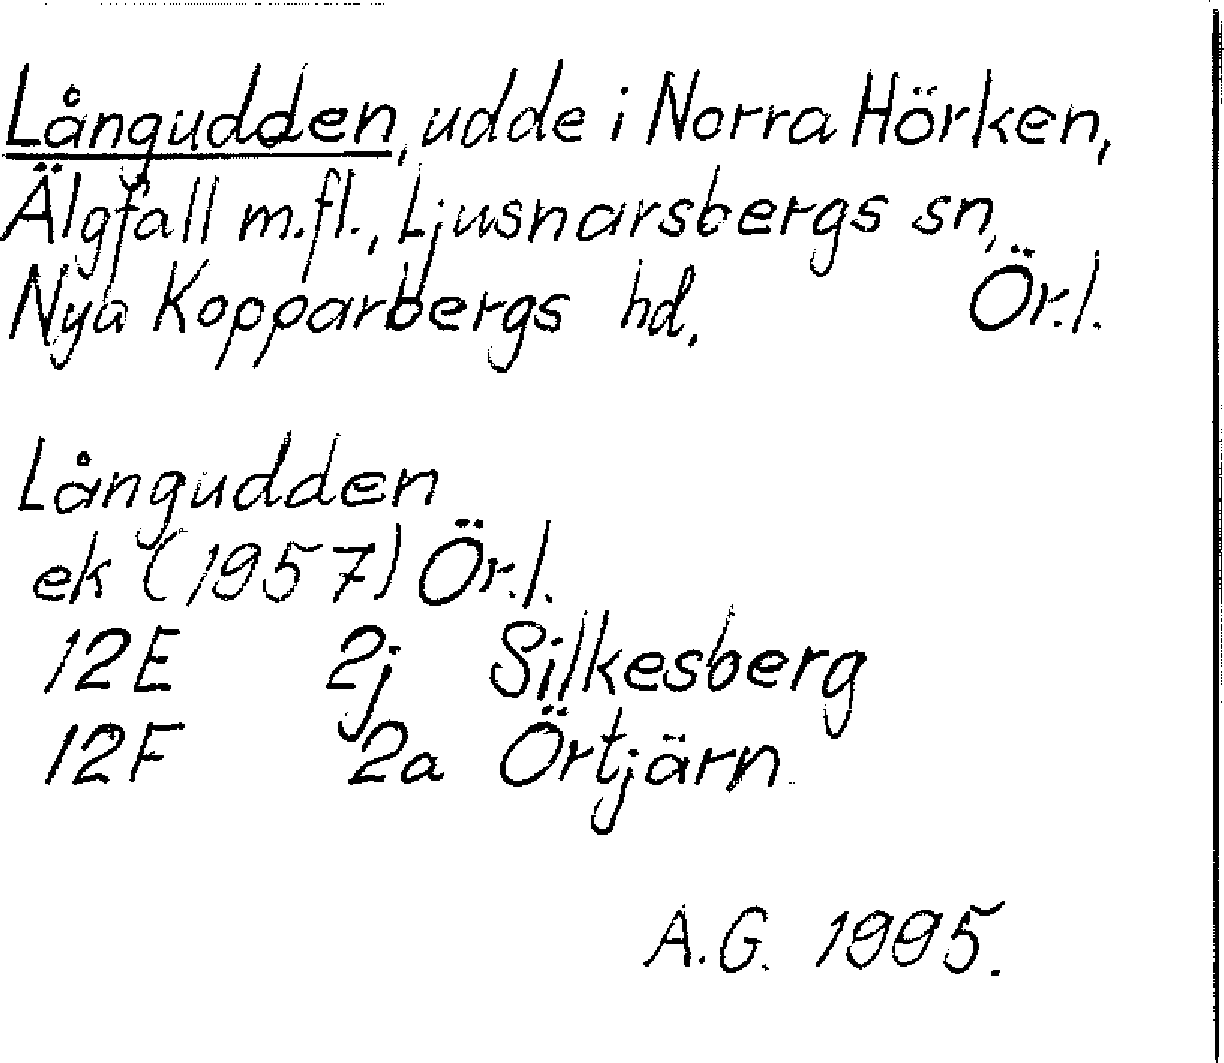 Långudden, udde i Norra Hörken,
Älgfall m.fl., Ljusnarsbergs sn,
Nya Kopparbergs hd. Ör.l.
Långudden
ek (1957) Ör.l.
12E 2j Silkesberg
12F 2a Örtjärn.
A.G. 1995.